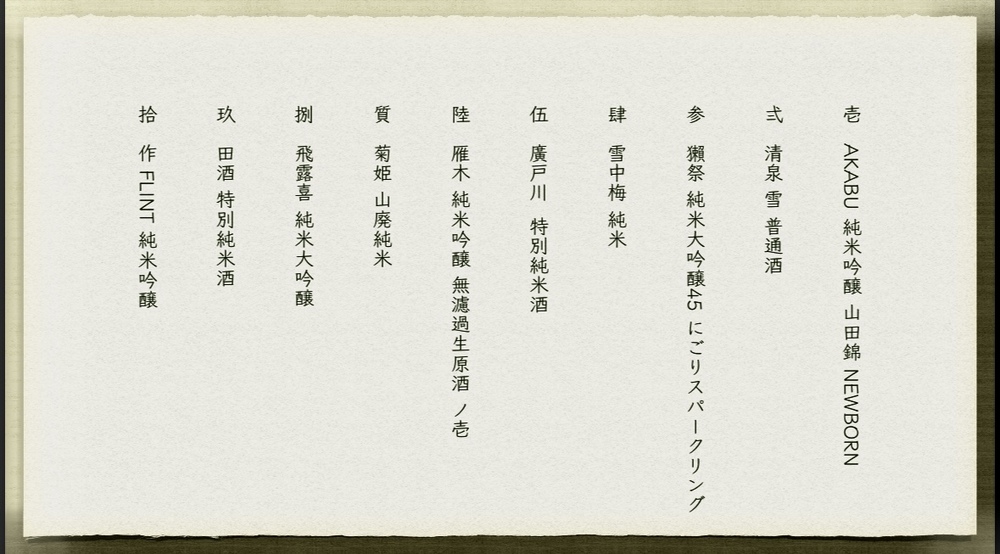 壱 AKABU 純米吟醸 山田錦 NEWBORN
弍 清泉 雪 普通酒
参 獺祭 純米大吟醸45 にごりスパークリング
肆 雪中梅 純米
伍 廣戸川 特別純米酒
陸 雁木 純米吟醸 無濾過生原酒 ノ壱
質 菊姫 山廃純米
捌 飛露喜 純米大吟醸
玖 田酒 特別純米酒
拾 作 FLINT 純米吟醸